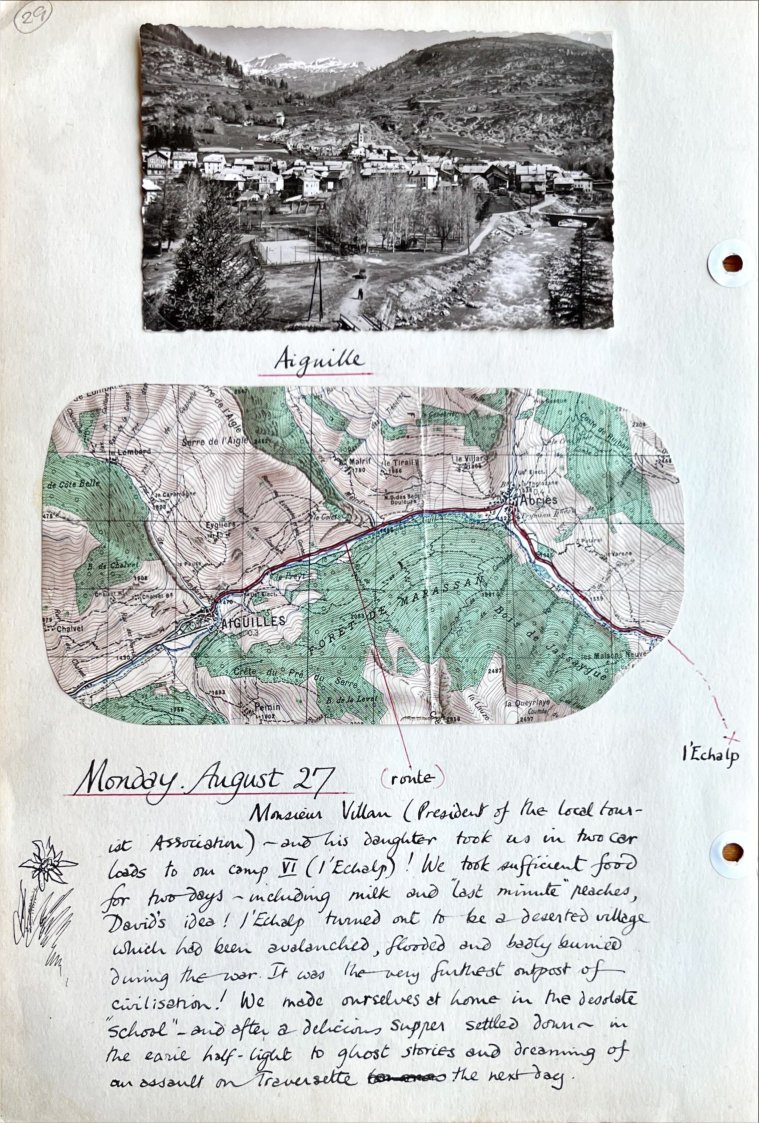 29
Aiguille
Serre de l'Aigle
Serre de l'Aigle
le Lombard
de Côte Belle
Malrif
le Tirail
le Villard
Abriès
Eygliers
B. de Chalvet
Chalvet
AIGUILLES
FORÊT DE MARASSAN
Bois de Jassaygue
les Maisons Neuve
Crête du Pré du Serre
B. de la Level
Penin
la Queyrlaye
2487
l'Echalp
(route)
Monday. August 27
Monsieur Villan (President of the local tour-
ist Association) - and his daughter took us in two car
loads to our camp VI (l'Echalp)! We took sufficient food
for two days - including milk and "last minute" peaches,
David's idea! l'Echalp turned out to be a deserted village
which had been avalanched, flooded and badly burned
during the war. It was the very furthest outpost of
civilisation! We made ourselves at home in the desolate
"school" - and after a delicious supper settled down in
the earie half-light to ghost stories and dreaming of
an assault on Traversette the next day.